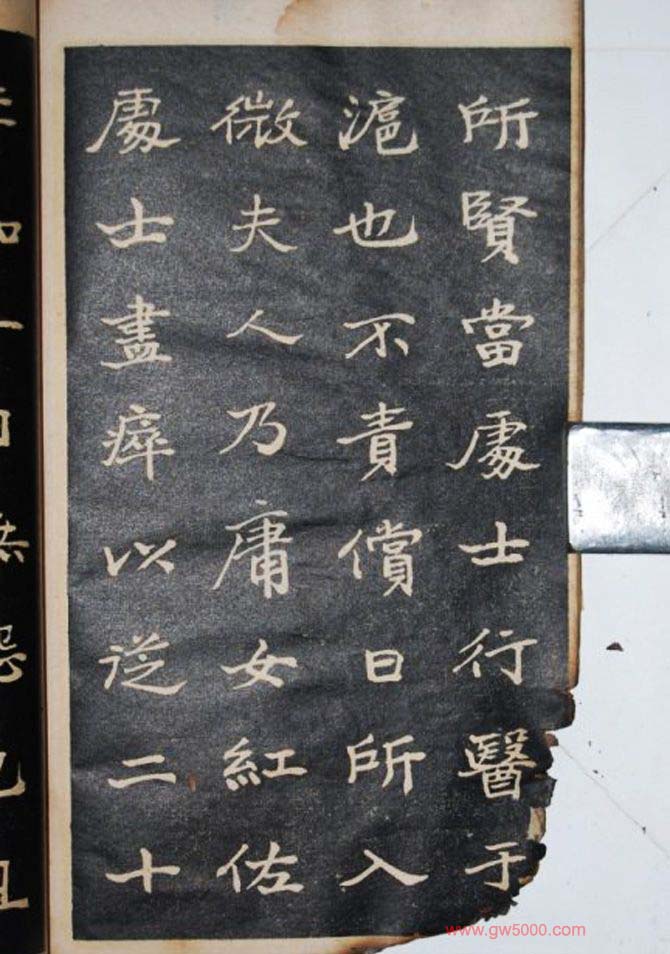 所賢當處士行醫于
滬也不責償日所入
微夫人乃庸女紅佐
處士盡瘁以從二十
www.gw5000.com